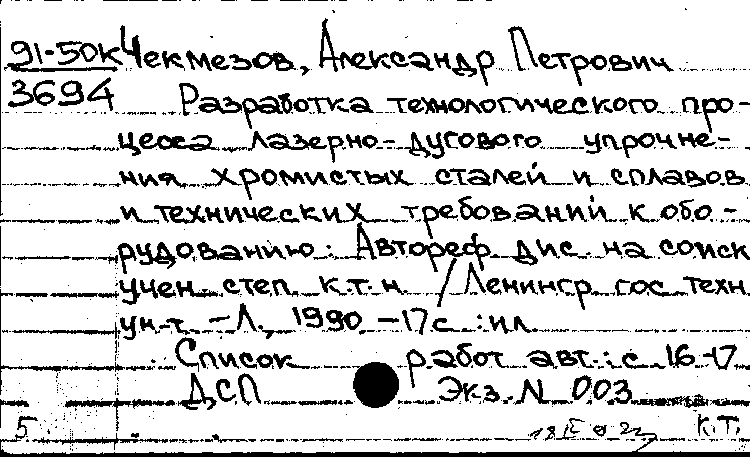 91-50к Чекмезов, Александр Петрович
3694 Разработка технологического про-
цесса лазерно-дугового упрочне-
ния хромистых сталей и сплавов
и технических требований к обо-
рудованию: Автореф. дис. на соиск.
учен. степ. к.т.н. / Ленингр. гос. техн.
ун-т. - Л., 1990. - 17 с. : ил.
Список работ авт.: с. 16-17
ДСП Экз. N 003
5 К.Т.